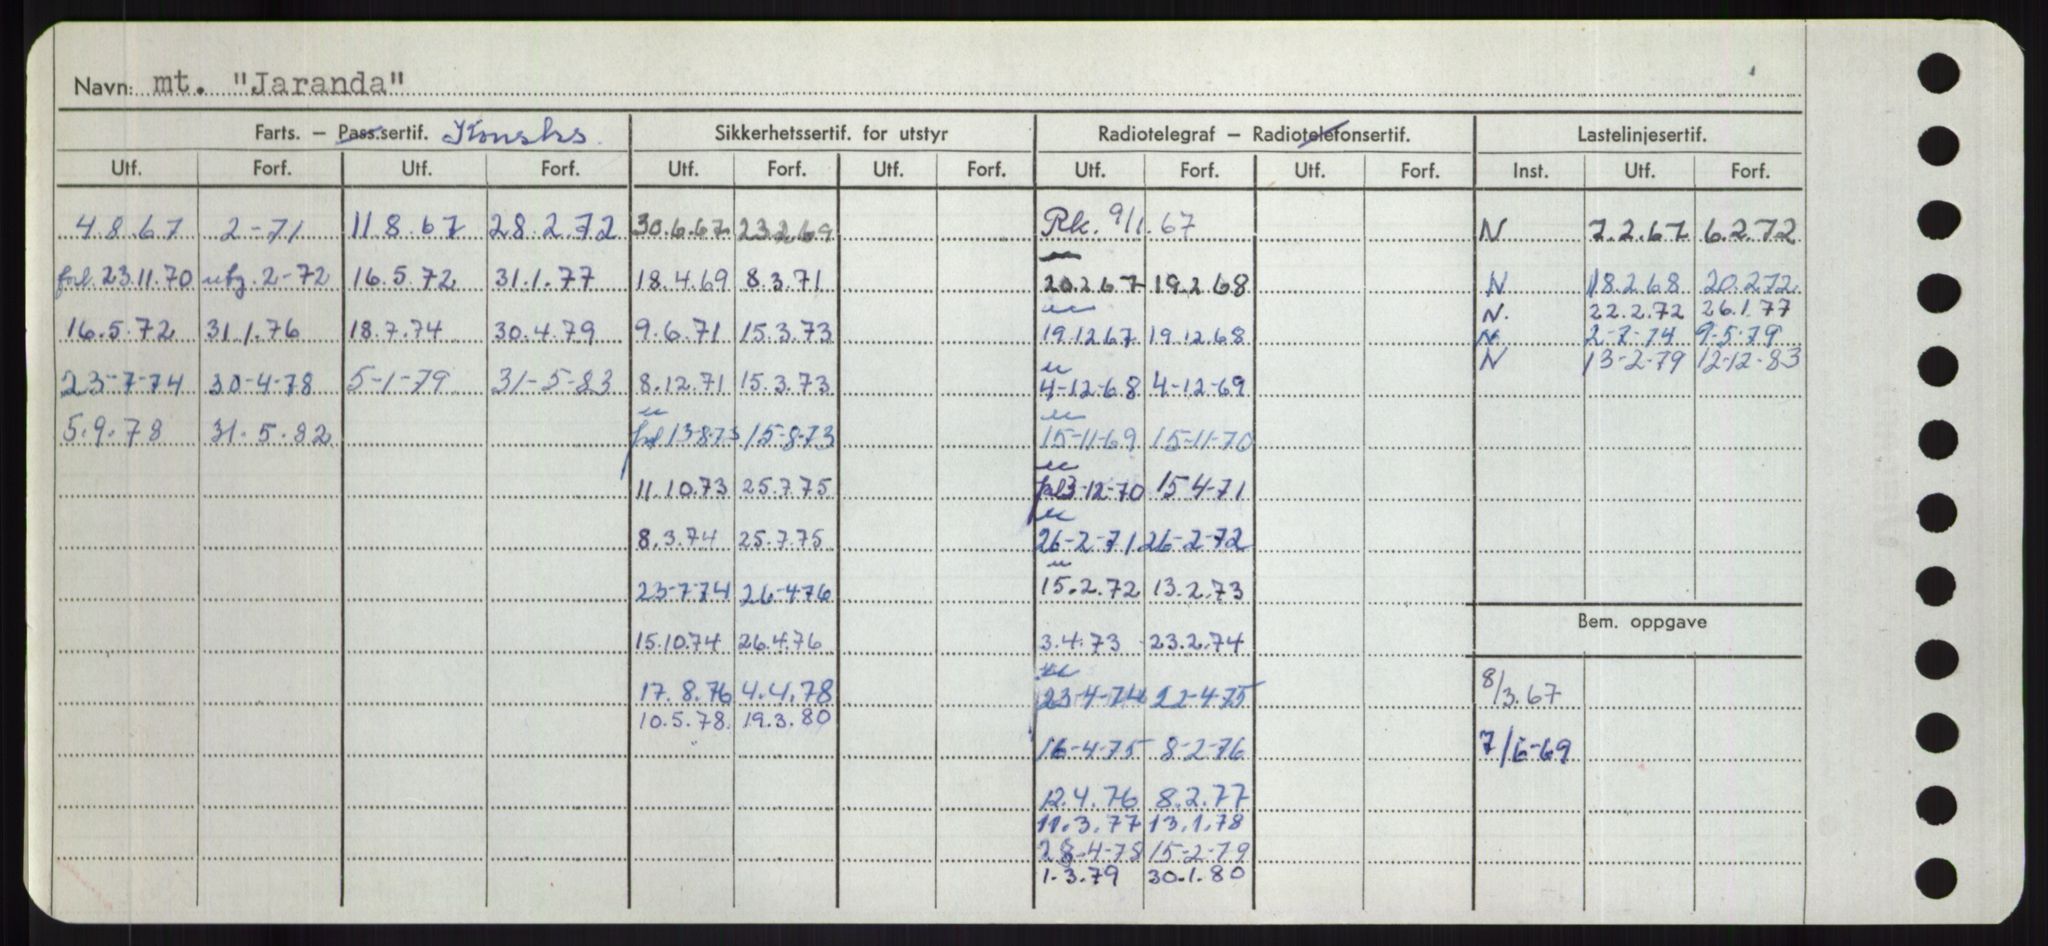 Navn: mt. "Jaranda"
Farts. – Pass.sertif. Konsks. Sikkerhetssertif. for utstyr Radiotelegraf – Radiotelefonsertif. Lastelinjesertif.
Utf. Forf. Utf. Forf. Utf. Forf. Utf. Forf. Utf. Forf. Utf. Forf. Inst. Utf. Forf.
4.8.67 2-71 11.8.67 28.2.72 30.6.67 23.2.69 Rk. 9/1.67 N 7.2.67 6.2.72
23.11.70 2-72 16.5.72 31.1.77 18.4.69 8.3.71 20.2.67 19.2.68 N 18.2.68 20.2.72
N. 22.2.72 26.1.77
16.5.72 31.1.76 18.7.74 30.4.79 9.6.71 15.3.73 19.12.67 19.12.68 N 2-7-74 9-5-79
N 13-2-79 12-12-83
23-7-74 30-4-78 5-1-79 31-5-83 8.12.71 15.3.73 4-12-68 4-12-69
5.9.78 31.5.82 13-8-73 15-8-73 15-11-69 15-11-70
11.10.73 25.7.75 3-12-70 15-4-71
8.3.74 25.7.75 26-2-71 26-2-72
23-7-74 26-4-76 15.2.72 13.2.73
Bem. oppgave
15.10.74 26.4.76 3.4.73 23.2.74
17.8.76 4.4.78 23-4-74 22-4-75 8/3.67
10.5.78. 19.3.80
16-4-75 8-2-76 7/6-69
12.4.76 8.2.77
11.3.77 13.1.78
28-4-78 15-2-79
1.3.79 30.1.80